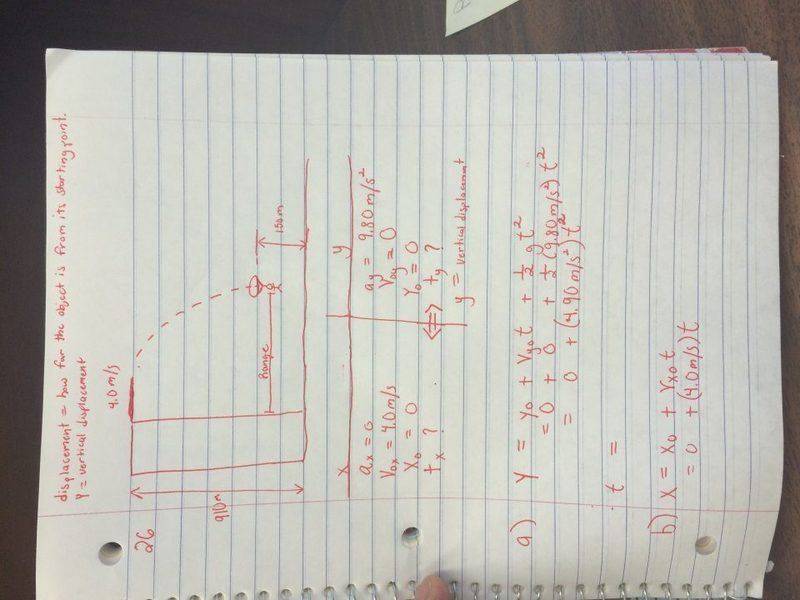 displacement = how far the object is from its starting point.
Y = vertical displacement
26
4.0 m/s
910m
Range
150m
x y
ax = 0 ay = 9.80 m/s²
Vox = 4.0 m/s Voy = 0
Xo = 0 Yo = 0
tx ? <=> ty ?
y = vertical displacement
a) Y = Yo + Vyo t + 1/2 g t²
= 0 + 0 + 1/2 (9.80 m/s²) t²
= 0 + (4.90 m/s²) t²
t =
b) X = Xo + Vxo t
= 0 + (4.0 m/s) t